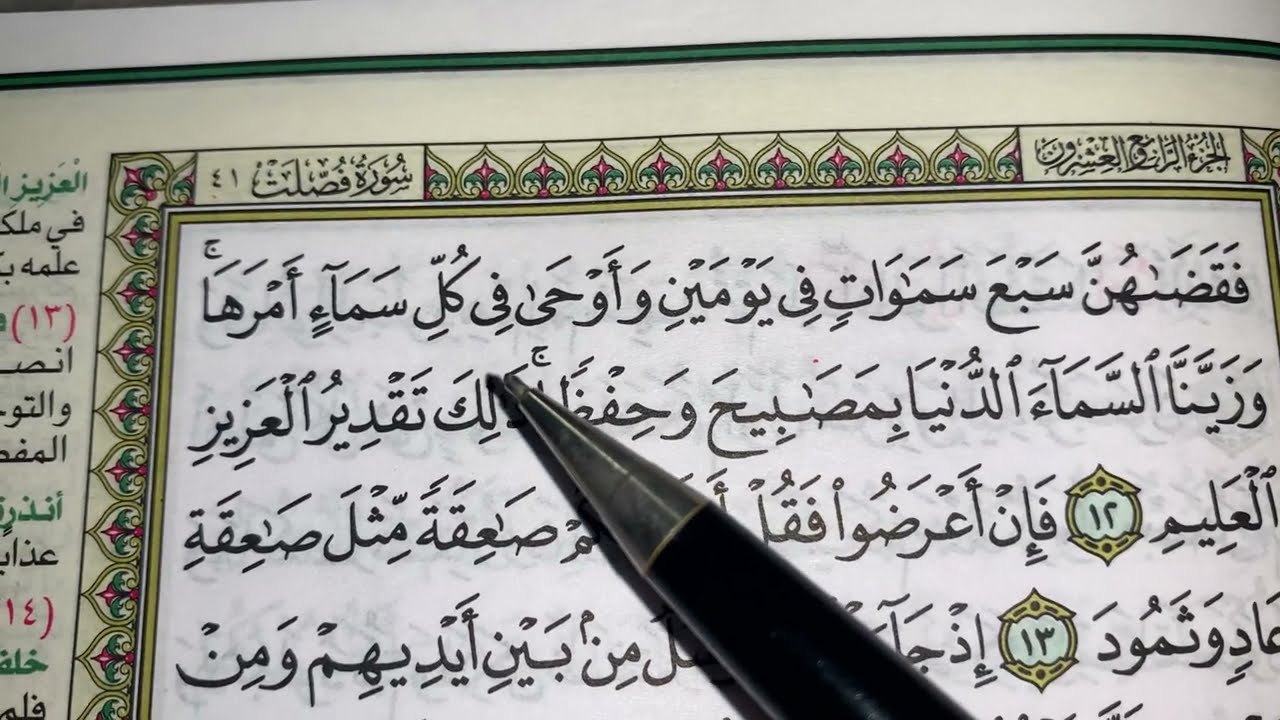 الجزء الرابع العشرون
سورة فصلت ٤١
فَقَضَىٰهُنَّ سَبْعَ سَمَٰوَاتٍ فِى يَوْمَيْنِ وَأَوْحَىٰ فِى كُلِّ سَمَآءٍ أَمْرَهَا ۚ
وَزَيَّنَّا ٱلسَّمَآءَ ٱلدُّنْيَا بِمَصَٰبِيحَ وَحِفْظًا ۚ ذَٰلِكَ تَقْدِيرُ ٱلْعَزِيزِ
ٱلْعَلِيمِ ١٢ فَإِنْ أَعْرَضُوا۟ فَقُلْ صَٰعِقَةً مِّثْلَ صَٰعِقَةِ
عَادٍ وَثَمُودَ ١٣ إِذْ مِنۢ بَيْنِ أَيْدِيهِمْ وَمِنْ
الْعَزِيزِ
في ملكه
علمه
(١٣)
والتو
أنذر
(١٤)
فلم